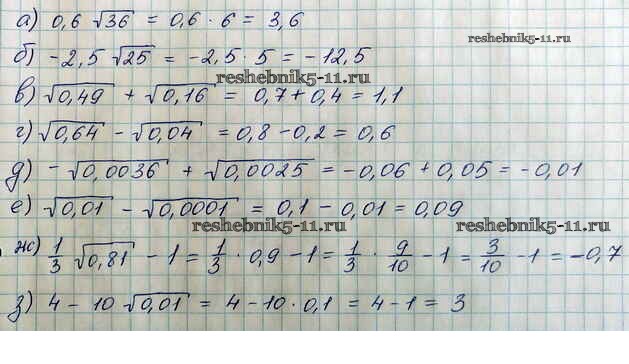 а) 0,6 √36 = 0,6 · 6 = 3,6
reshebnik5-11.ru
б) -2,5 √25 = -2,5 · 5 = -12,5
reshebnik5-11.ru
в) √0,49 + √0,16 = 0,7 + 0,4 = 1,1
г) √0,64 - √0,04 = 0,8 - 0,2 = 0,6
д) -√0,0036 + √0,0025 = -0,06 + 0,05 = -0,01
е) √0,01 - √0,0001 = 0,1 - 0,01 = 0,09
reshebnik5-11.ru reshebnik5-11.ru
ж) 1/3 √0,81 - 1 = 1/3 · 0,9 - 1 = 1/3 · 9/10 - 1 = 3/10 - 1 = -0,7
з) 4 - 10 √0,01 = 4 - 10 · 0,1 = 4 - 1 = 3